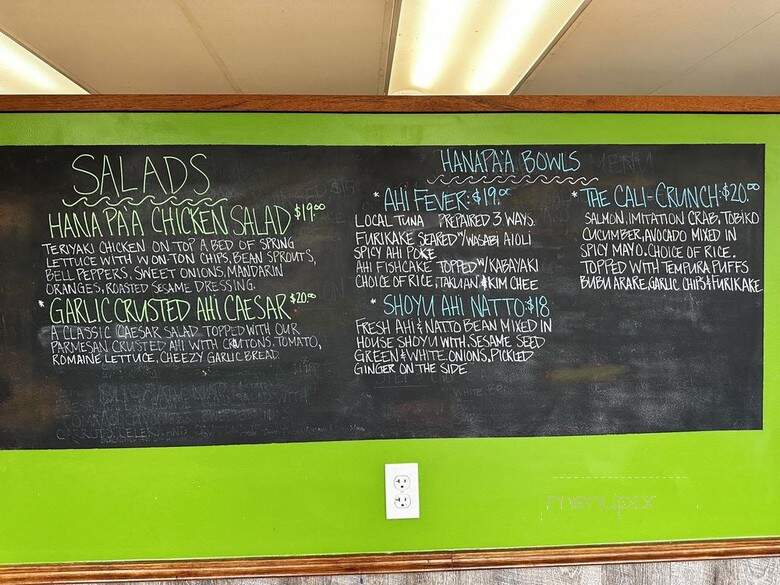 SALADS
HANA PA'A CHICKEN SALAD $19.00
TERIYAKI CHICKEN ON TOP A BED OF SPRING
LETTUCE WITH WON-TON CHIPS, BEAN SPROUTS,
BELL PEPPERS, SWEET ONIONS, MANDARIN
ORANGES, ROASTED SESAME DRESSING.
* GARLIC CRUSTED AHI CAESAR $20.00
A CLASSIC CAESAR SALAD TOPPED WITH OUR
PARMESAN CRUSTED AHI WITH CROUTONS, TOMATO,
ROMAINE LETTUCE, CHEEZY GARLIC BREAD.
HANAPA'A BOWLS
* AHI FEVER: $19.00
LOCAL TUNA PREPARED 3 WAYS.
FURIKAKE SEARED W/WASABI AIOLI
SPICY AHI POKE
AHI FISHCAKE TOPPED W/KABAYAKI
CHOICE OF RICE, TAKUAN & KIM CHEE
* SHOYU AHI NATTO: $18
FRESH AHI & NATTO BEAN MIXED IN
HOUSE SHOYU WITH SESAME SEED
GREEN & WHITE ONIONS, PICKLED
GINGER ON THE SIDE
* THE CALI-CRUNCH: $20.00
SALMON, IMITATION CRAB, TOBIKO
CUCUMBER, AVOCADO MIXED IN
SPICY MAYO. CHOICE OF RICE.
TOPPED WITH TEMPURA PUFFS
BUBU ARARE, GARLIC CHIPS & FURIKAKE
menupix